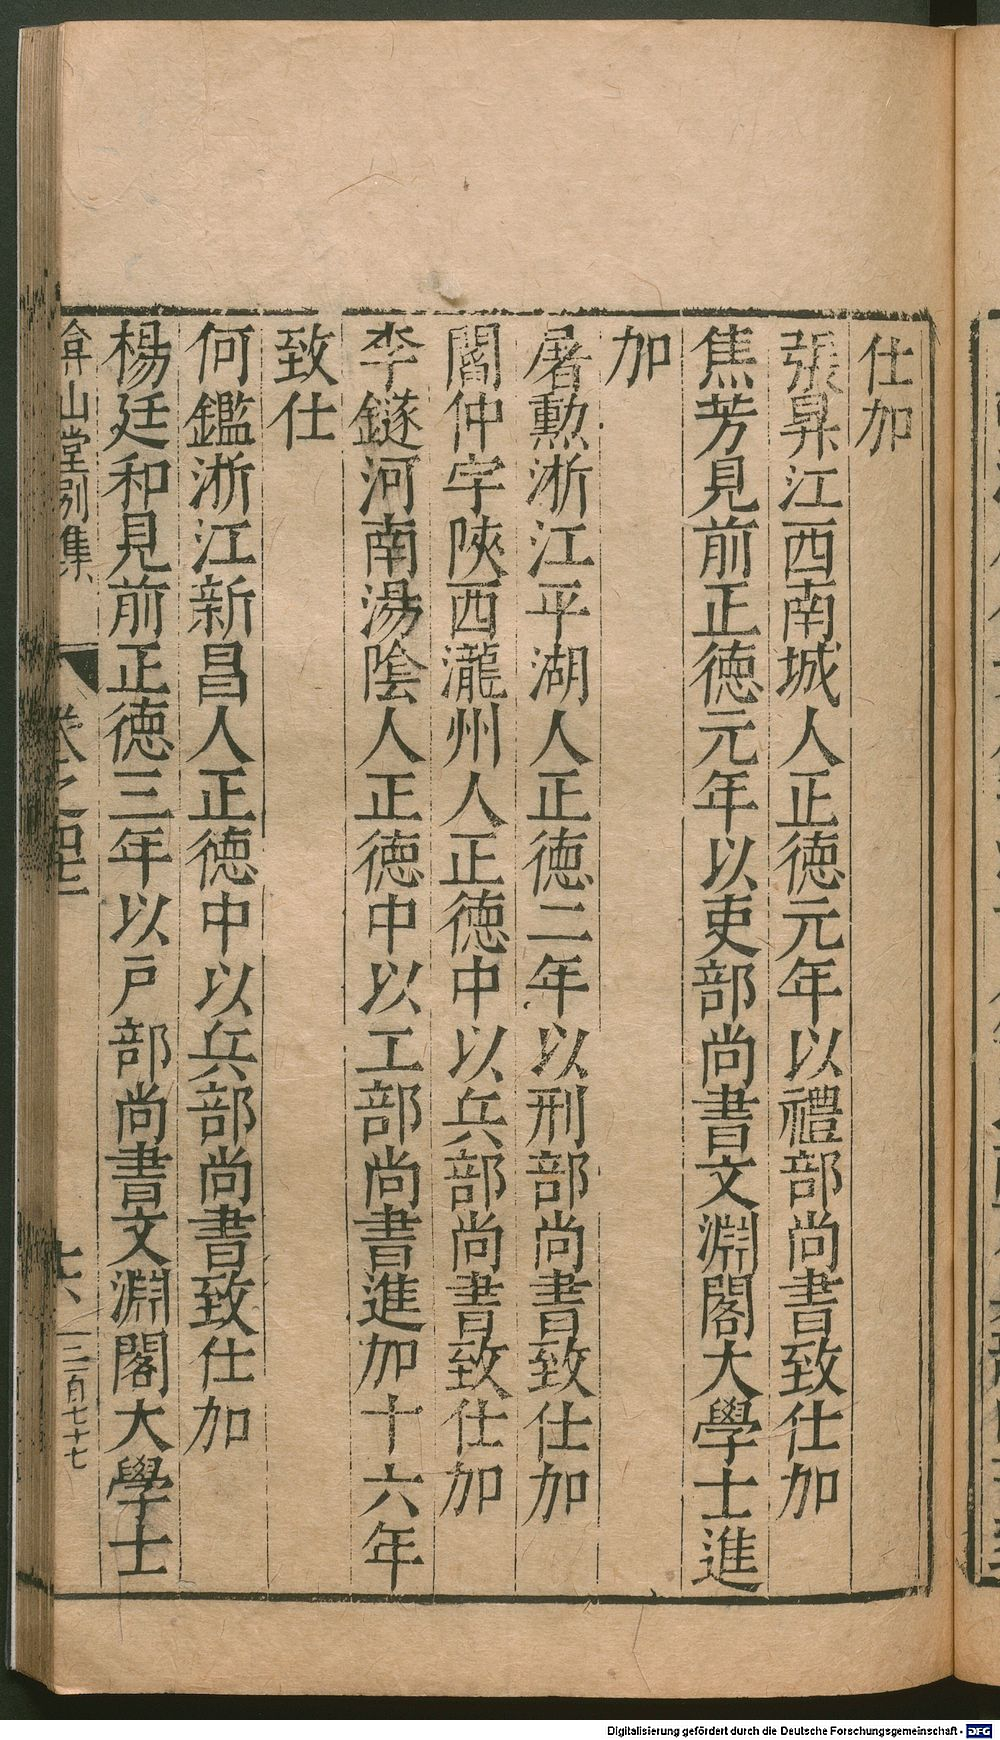 仕加
張昇江西南城人正德元年以禮部尚書致仕加
焦芳見前正德元年以吏部尚書文淵閣大學士進
加
屠勲淅江平湖人正德二年以刑部尚書致仕加
閻仲宇陝西瀧州人正德中以兵部尚書致仕加
李鐩河南湯陰人正德中以工部尚書進加十六年
致仕
何鑑淅江新昌人正德中以兵部尚書致仕加
楊廷和見前正德三年以戸部尚書文淵閣大學士
弇山堂别集 卷之四十 三百七十七
Digitalisierung gefördert durch die Deutsche Forschungsgemeinschaft - DFG